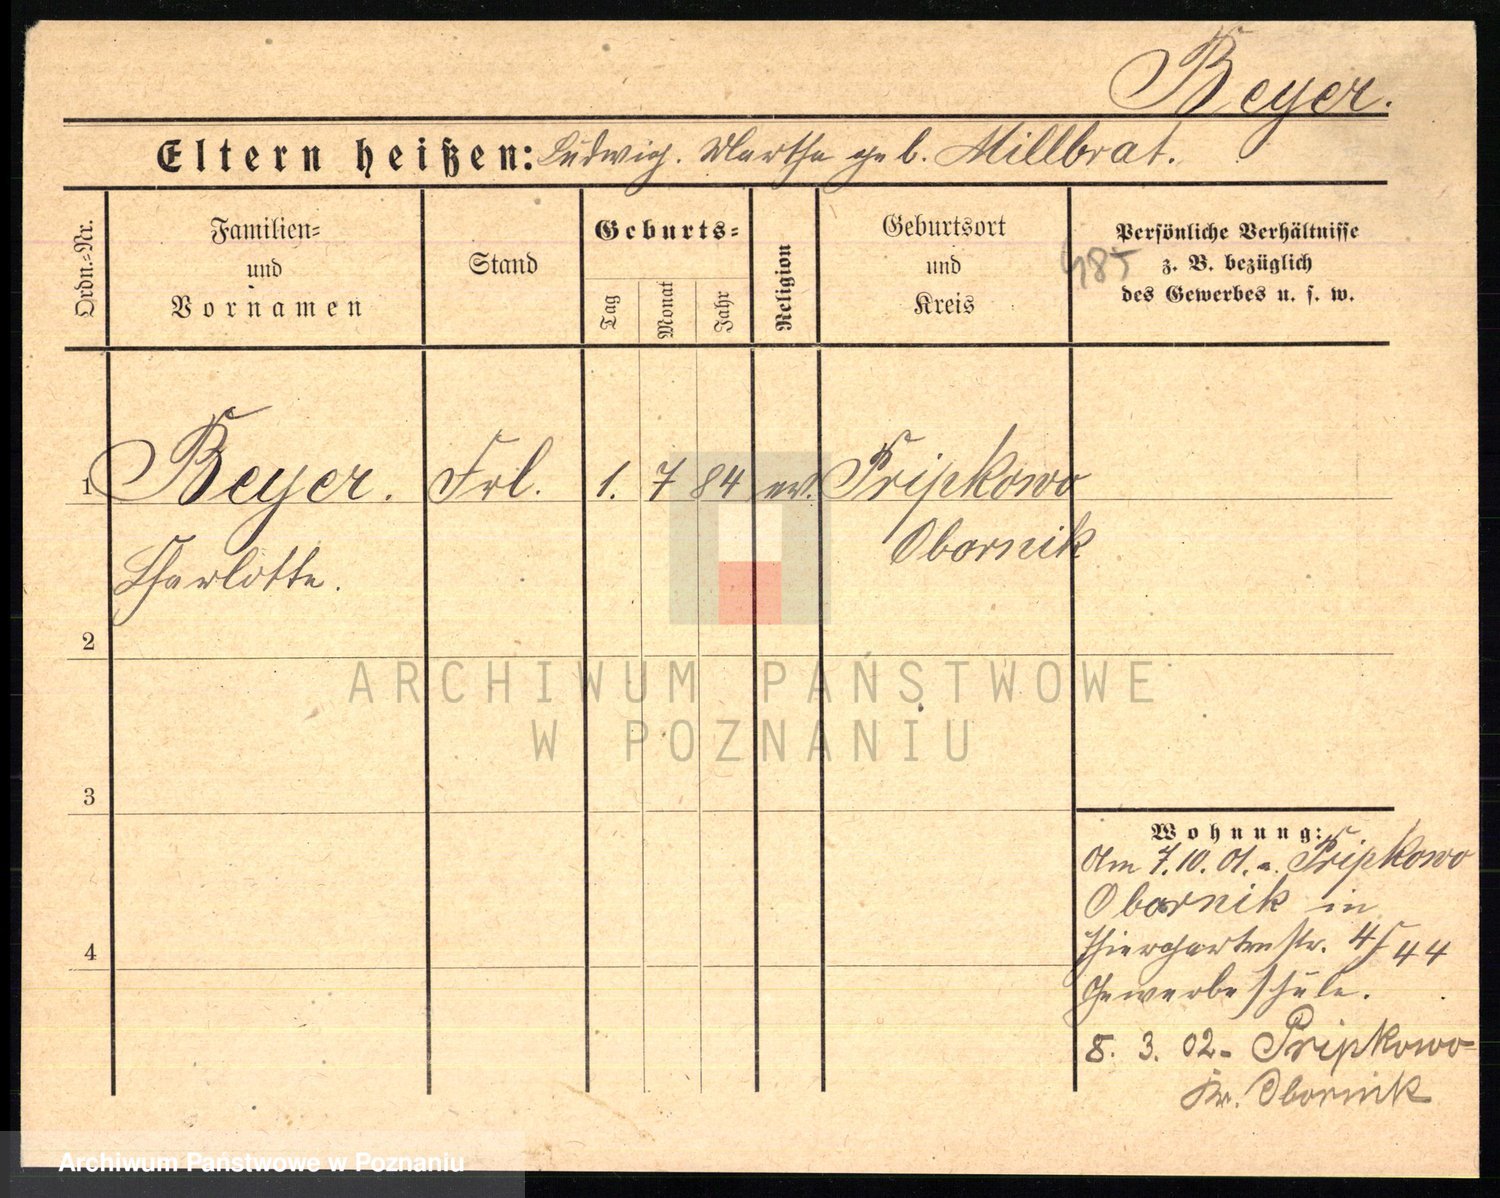 Beyer.
Eltern heißen: Ludwig. Martha geb. Millbrat.
Ordn.-Nr.
Familien=
und
Vornamen
Stand
Geburts=
Tag
Monat
Jahr
Religion
Geburtsort
und
Kreis
485
Persönliche Verhältnisse
z. B. bezüglich
des Gewerbes u. s. w.
1 Beyer. Frl. 1. 7 84 ev. Pripkowo
Obornik
Charlotte.
2
3
4
Wohnung:
Am 7.10.01. a. Pripkowo
Obornik in
Thiergartenstr. 4/5 44
Gewerbeschule.
8. 3. 02 - Pripkowo
Kr. Obornik
ARCHIWUM PAŃSTWOWE
W POZNANIU
Archiwum Państwowe w Poznaniu